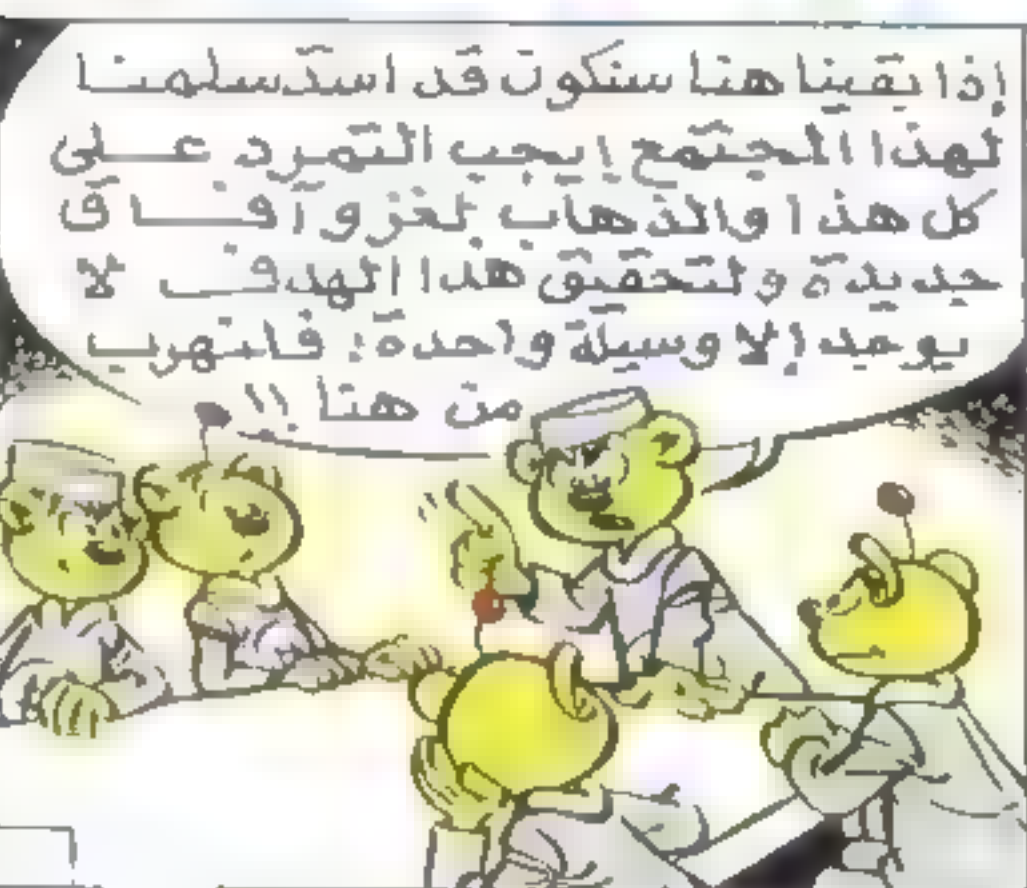 إذا بقينا هنا سنكون قد استسلمنا
لهذا المجتمع إيجب التمرد على
كل هذا والذهاب لغزو آفاق
جديدة ولتحقيق هذا الهدف لا
يوجد إلا وسيلة واحدة: فلنهرب
من هنا !!